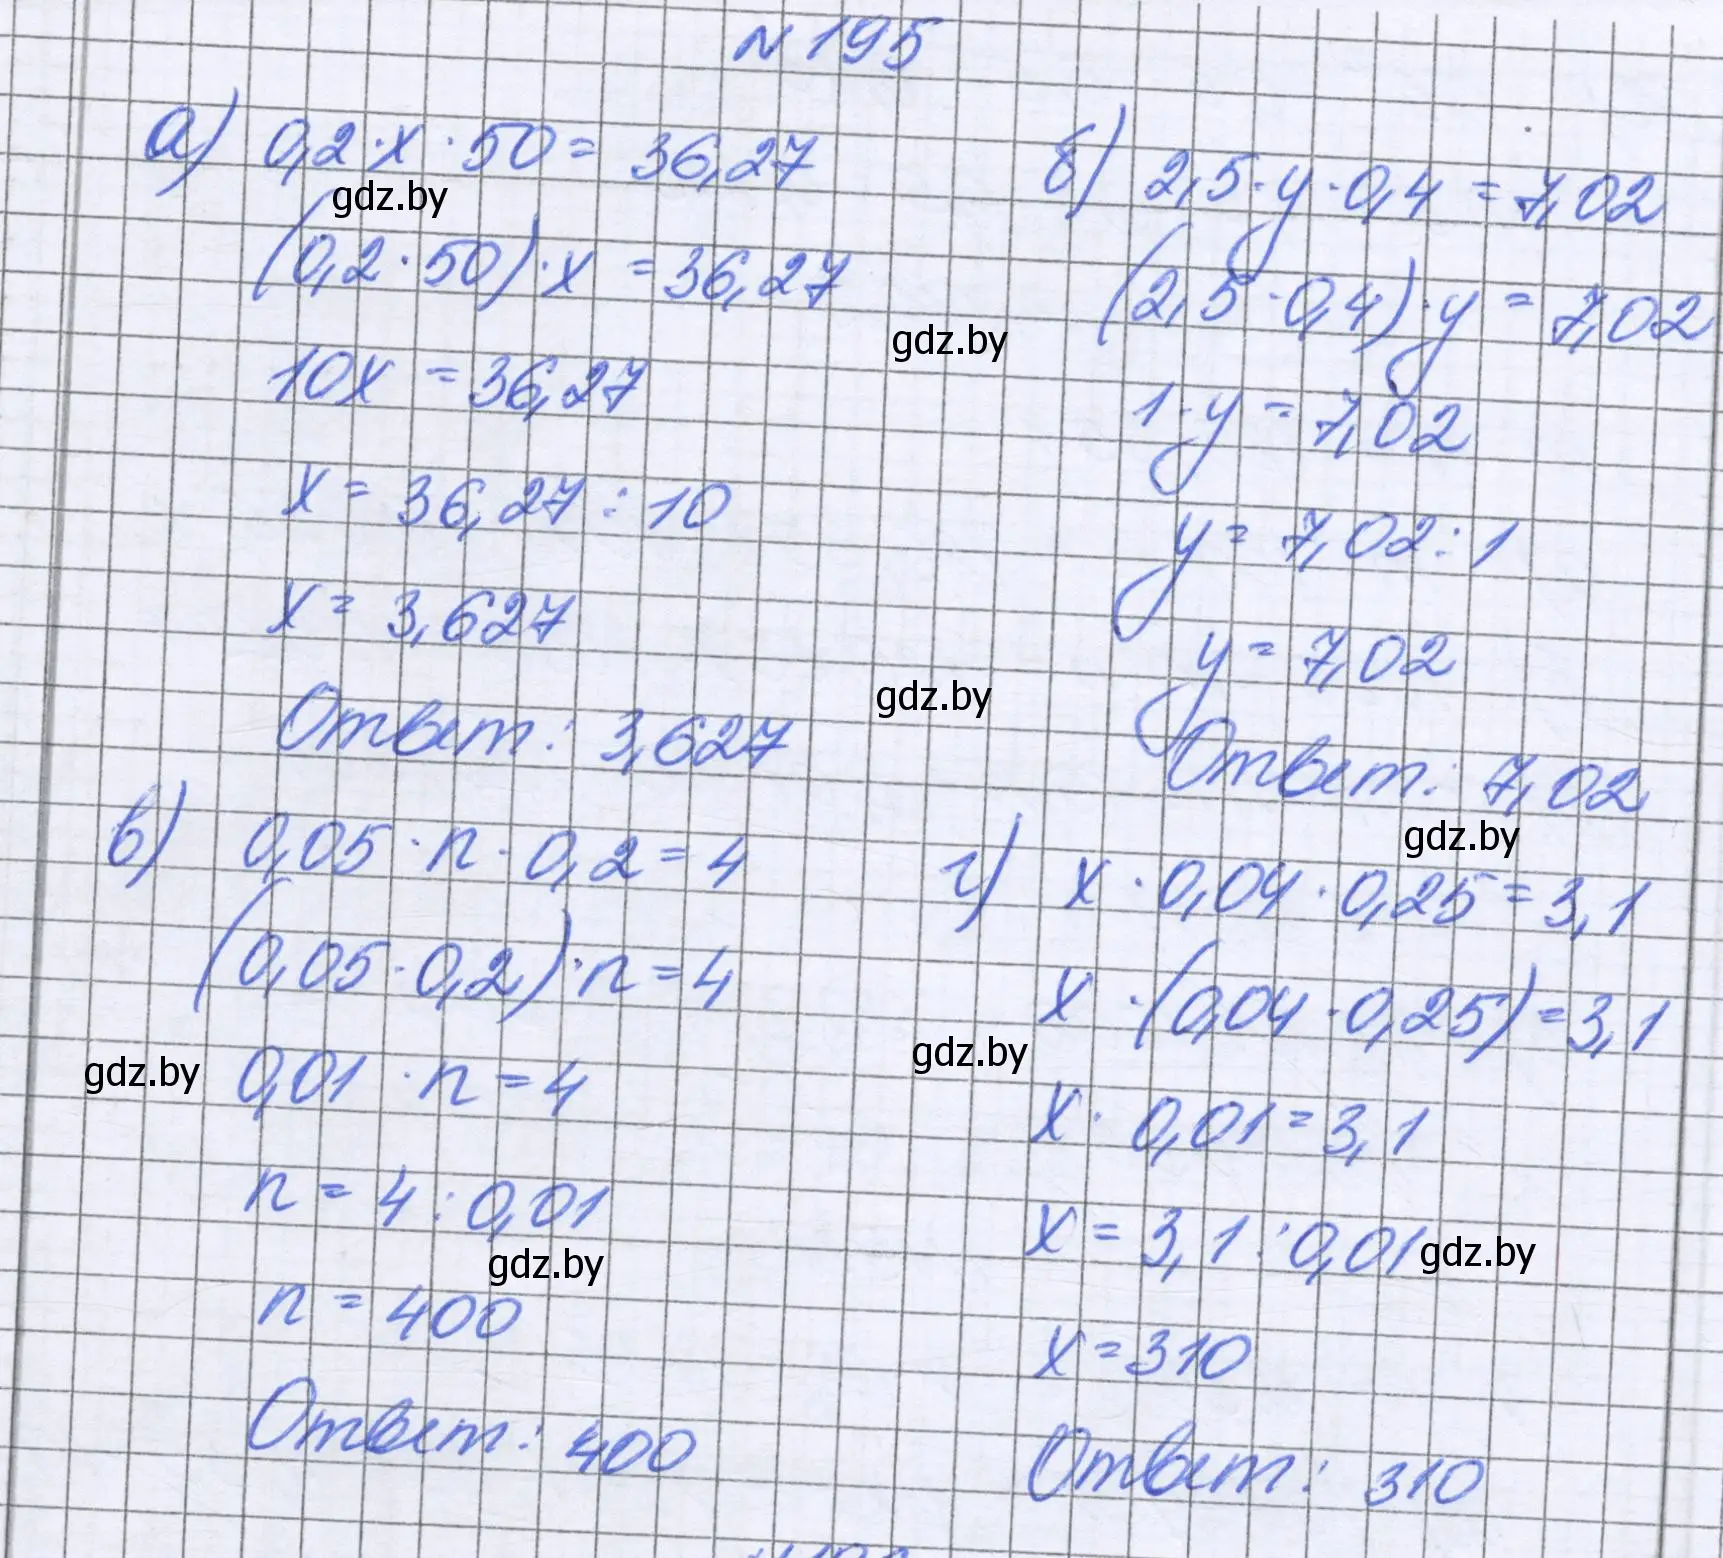 N 195
а) 0,2 · x · 50 = 36,27
gdz.by
(0,2 · 50) · x = 36,27
10x = 36,27
x = 36,27 : 10
x = 3,627
Ответ: 3,627
б) 2,5 · y · 0,4 = 7,02
(2,5 · 0,4) · y = 7,02
gdz.by
1 · y = 7,02
y = 7,02 : 1
y = 7,02
gdz.by
Ответ: 7,02
gdz.by
в) 0,05 · n · 0,2 = 4
(0,05 · 0,2) · n = 4
gdz.by
0,01 · n = 4
n = 4 : 0,01
gdz.by
n = 400
Ответ: 400
г) x · 0,04 · 0,25 = 3,1
x · (0,04 · 0,25) = 3,1
gdz.by
x · 0,01 = 3,1
x = 3,1 : 0,01
gdz.by
x = 310
Ответ: 310